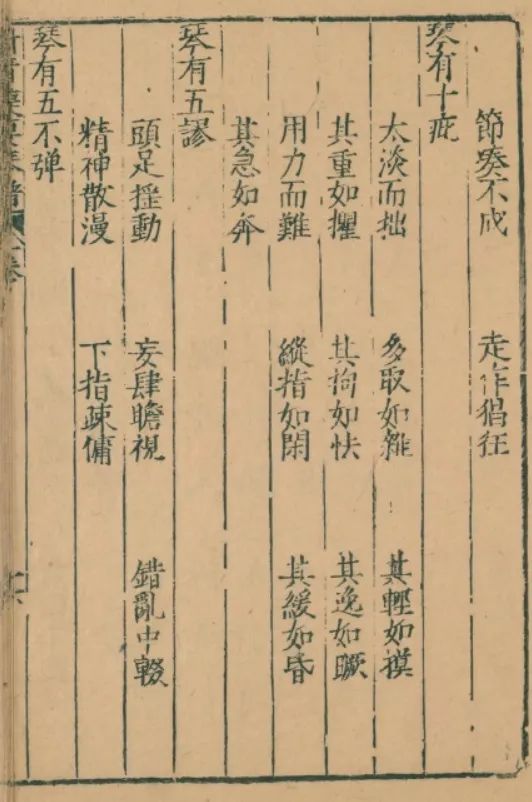 節奏不成 走作猖狂
琴有十疵
太淡而拙 多取如雜 其輕如摸
其重如攫 其拘如怏 其逸如蹶
用力而難 縱指如閑 其緩如昏
其急如奔
琴有五謬
頭足搖動 妄肆瞻視 錯亂中輟
精神散漫 下指疎慵
琴有五不彈